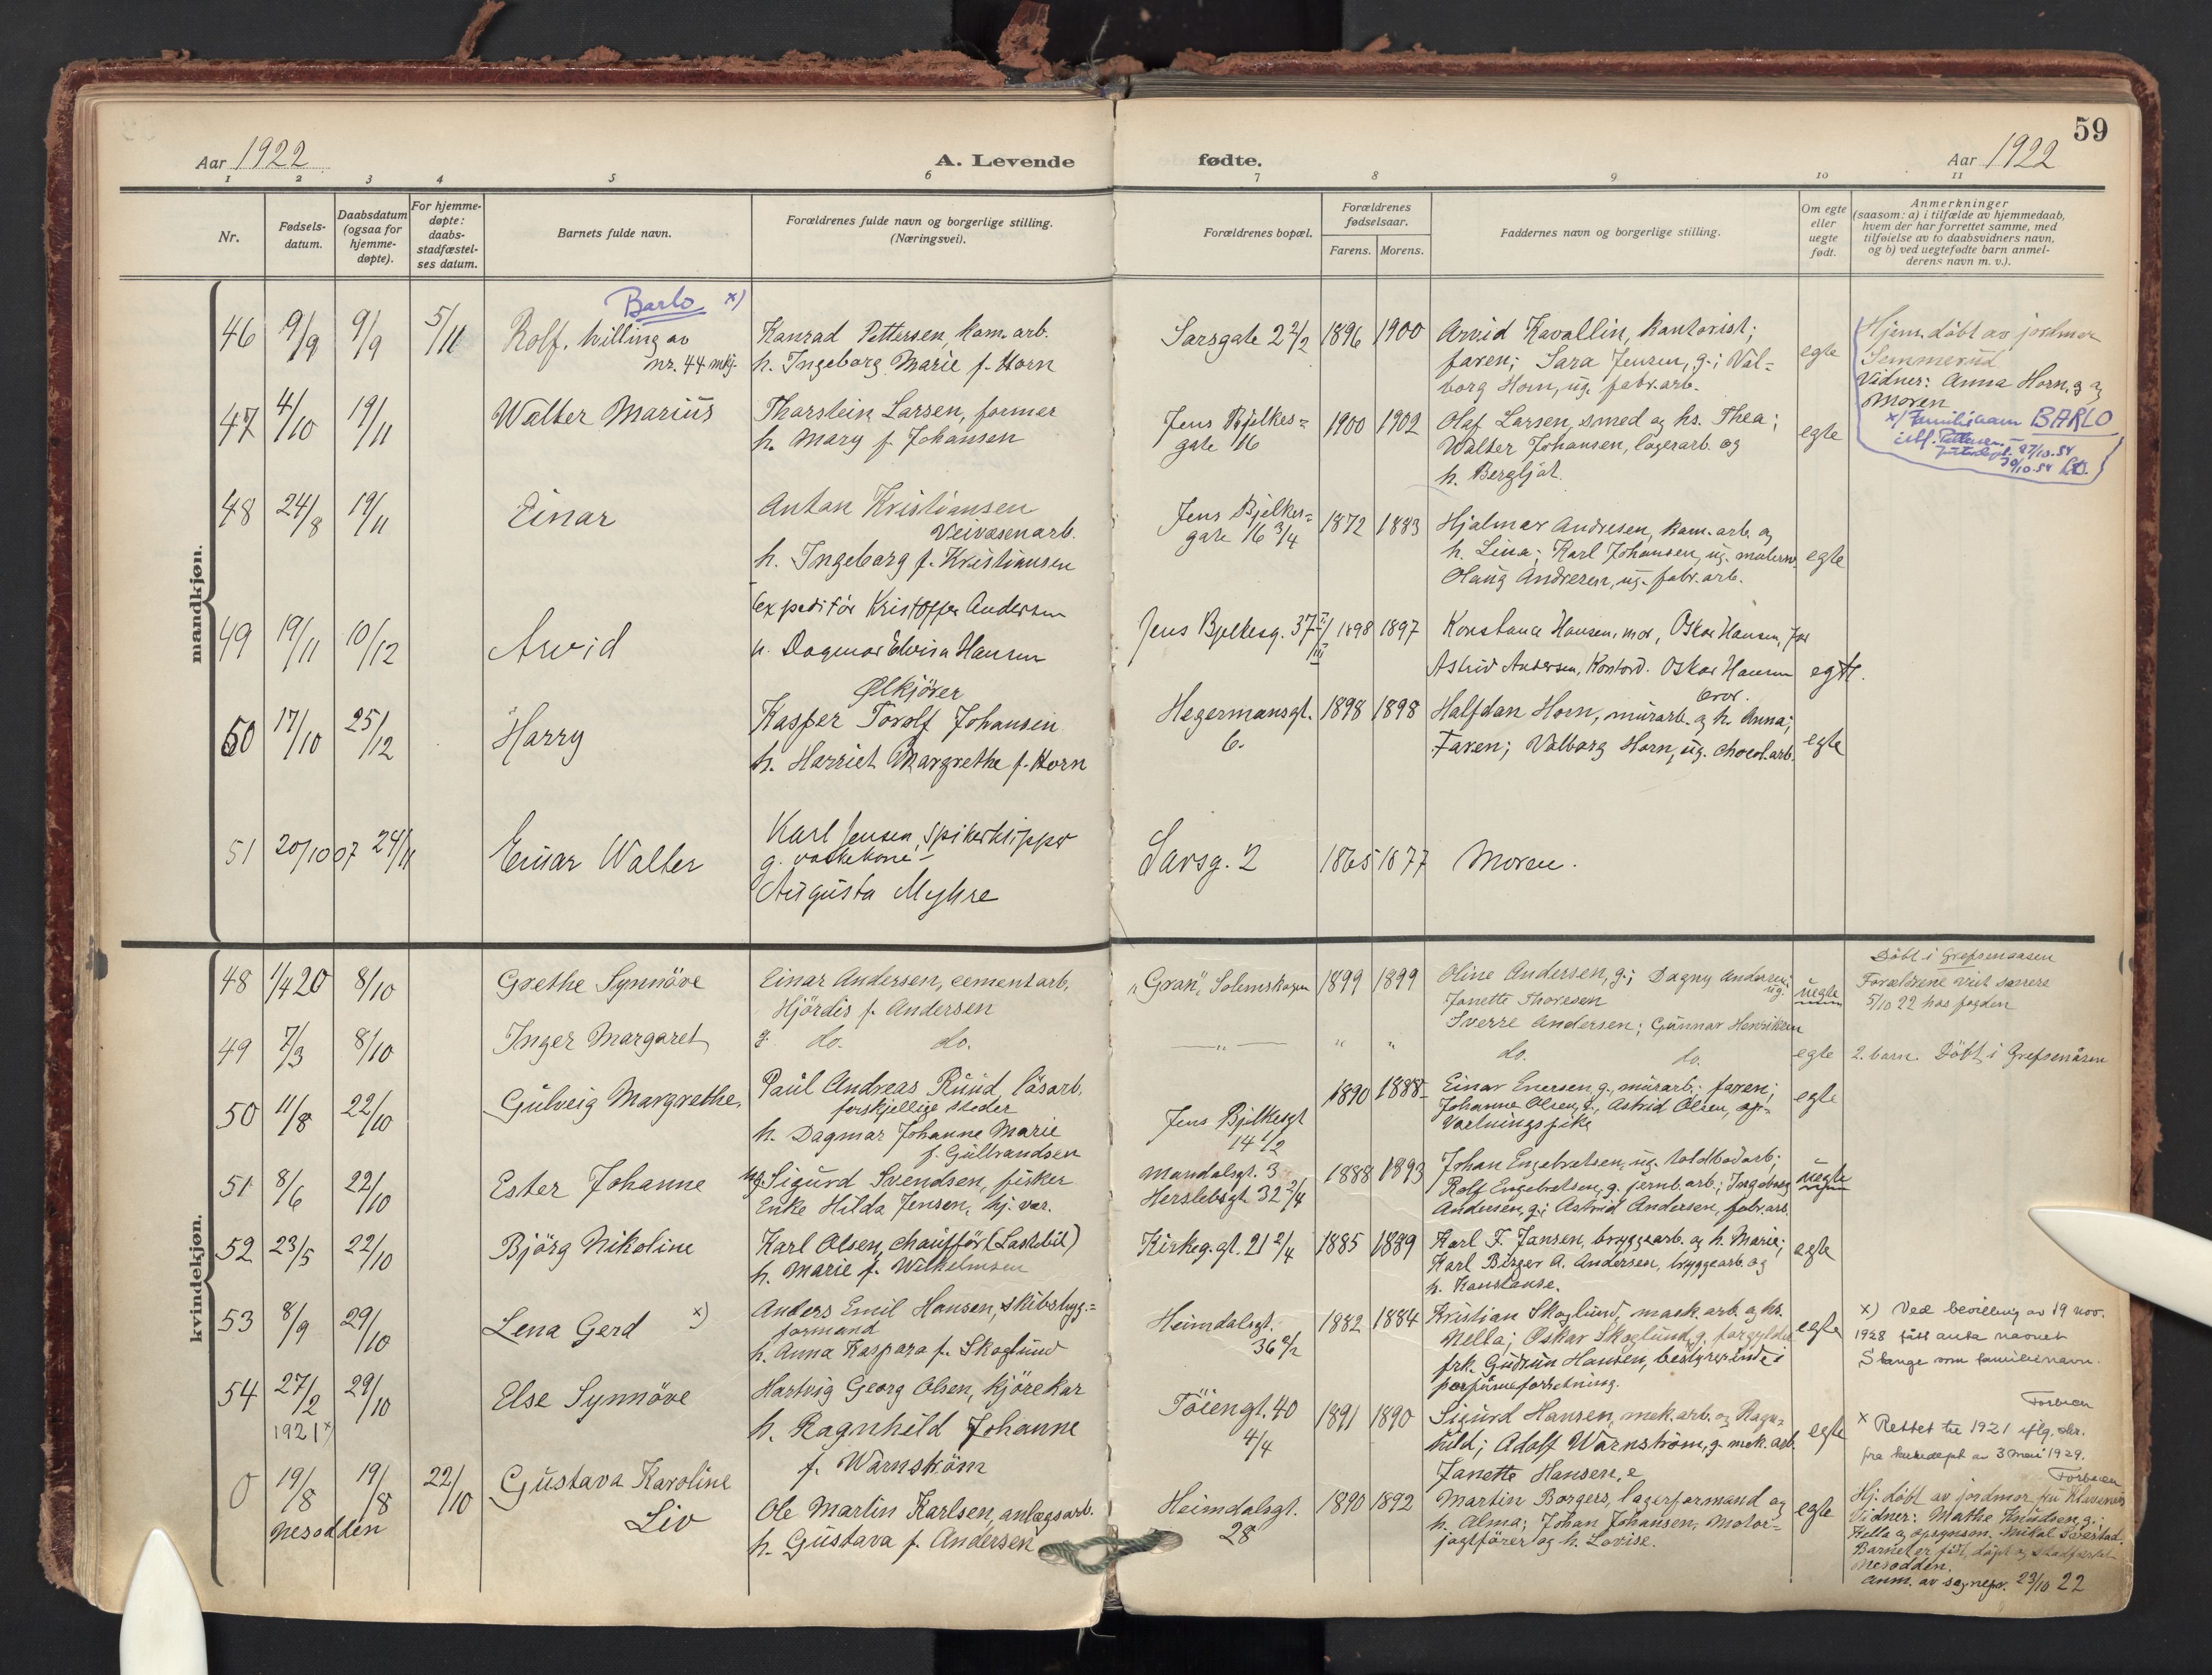 59
Aar 1922
A. Levende fødte.
Aar 1922
1 2 3 4 5 6 7 8 9 10 11
Nr.
Fødsels-
datum.
Daabsdatum
(ogsaa for
hjemme-
døpte).
For hjemme-
døpte:
daabs-
stadfæstel-
ses datum.
Barnets fulde navn.
Forældrenes fulde navn og borgerlige stilling.
(Næringsvei).
Forældrenes bopæl.
Forældrenes
fødselsaar.
Farens. Morens.
Faddernes navn og borgerlige stilling.
Om egte
eller
uegte
født.
Anmerkninger
(saasom: a) i tilfælde av hjemmedaab,
hvem der har forrettet samme, med
tilføielse av to daabsvidners navn,
og b) ved uegtefødte barn anmel-
derens navn m. v.).
mandkjøn.
46 9/9 9/9 5/11
Barlo x)
Rolf. tvilling av
nr. 44 mkj.
Konrad Pettersen, kom. arb.
h. Ingeborg Marie f. Horn
Sarsgate 2 2/2
1896 1900
Arvid Kavallin, kontorist;
faren; Sara Jensen, g.; Val-
borg Horn, ug. fabr.arb.
egte
Hjem. döbt av jordmor
Semmerud
Vidner: Anna Horn, g og
Moren
x) Familienavn BARLO
27/10.54
47 4/10 19/11
Walter Marius
Thorstein Larsen, former
h. Mary f. Johansen
Jens Bjelkes=
gate 16
1900 1902
Olaf Larsen, smed og hs. Thea;
Walter Johansen, lagerarb. og
h. Bergljot.
egte
48 24/8 19/11
Einar
Anton Kristiansen
Veivæsenarb.
h. Ingeborg f. Kristiansen
Jens Bjelkes=
gate 16 3/4
1872 1883
Hjalmar Andresen, kom. arb. og
h. Lina; Karl Johansen, ug. malersv.
Olaug Andresen, ug. fabr. arb.
egte
49 19/11 10/12
Arvid
Expeditör Kristoffer Andersen
h. Dagmar Elvira Hansen
Jens Bjelkesg. 37 I/III
1898 1897
Konstance Hansen, mor, Oskar Hansen, far
Astrid Andersen, Kontord. Oskar Hansen
bror.
egte.
50 17/10 25/12
Harry
Ølkjörer
Kasper Torolf Johansen
h. Harriet Margrethe f. Horn
Hegermansgt.
6.
1898 1898
Halfdan Horn, murarb. og h. Anna;
Faren; Valborg Horn, ug. chocol.arb.
egte
51 20/10 07 24/11
Einar Walter
Karl Jensen, spikerklipper
g. vaskekone
Augusta Myhre
Sarsg. 2
1865 1877
Moren.
kvindekjøn.
48 1/4 20 8/10
Grethe Synnöve
Einar Andersen, cementarb.
Hjördis f. Andersen
"Gran", Solemskogen
1899 1899
Oline Andersen, g.; Dagny Andersen
ug.
Janette Thoresen
Sverre Andersen; Gunnar Henriksen
uegte
Döbt i Grefsenaasen
Forældrene viet senere
5/10 22 hos fogden
49 7/3 8/10
Inger Margaret
g. do. do.
— " — " "
do. do.
egte
2. barn. Döbt i Grefsenåsen
50 11/8 22/10
Gulveig Margrethe.
Paul Andreas Ruud, lösarb.
forskjellige steder
h. Dagmar Johanne Marie
f. Gulbrandsen
Jens Bjelkesgt
14 1/2
1890 1888
Einar Enersen, g., murarb.; faren;
Johanne Olsen, g., Astrid Olsen, op-
vartningspike
egte
51 8/6 22/10
Ester Johanne
ug. Sigurd Svendsen, fisker
Enke Hilda Jensen, hj. vær.
Mandalsgt. 3
Herslebsgt 32 2/4
1888 1893
Johan Engebretsen, ug. toldbodarb;
Rolf Engebretsen, g. jernb.arb.; Ingeborg
Andersen, g.; Astrid Andersen, fabr.arb.
uegte
52 23/5 22/10
Björg Nikoline
Karl Olsen, chauffför (Lastebil)
h. Marie f. Wilhelmsen
Kirkeg.gt. 21 2/4
1885 1889
Karl F. Jansen, bryggearb. og h. Marie;
Karl Birger A. Andersen, bryggearb. og
h. Konstanse.
egte
53 8/9 29/10
Lena Gerd x)
Anders Emil Hansen, skibsbyg.=
formand
h. Anna Kaspara f. Skoglund
Heimdalsgt.
36 2/2
1882 1884
Kristian Skoglund, mask. arb. og hs.
Nella; Oskar Skoglund, g. forgylder
frk. Gudrun Hansen, bestyrerinde i
parfumeforretning.
egte
x) Ved bevilling av 19 nov.
1928 fått anta navnet
Stange som familienavn.
54 27/2 29/10
1921 x)
Else Synnöve
Hartvig Georg Olsen, kjörekar
h. Ragnhild Johanne
f. Wärnström
Töiengt. 40
4/4
1891 1890
Sigurd Hansen, mek. arb. og Ragn-
hild; Adolf Wärnström, g. mek. arb.
Janette Hansen, e
egte
x Rettet til 1921 iflg. skr.
fra kirkedept av 3 mai 1929.
0 19/8 19/8 22/10
Nesodden
Gustava Karoline
Liv
Ole Martin Karlsen, anlægsarb.
h. Gustava f. Andersen
Heimdalsgt.
28
1890 1892
Martin Borgers, lagerformand og
h. Alma; Johan Johansen, motor-
jagtförer og h. Lovise.
egte
Hj. döbt av jordmor fru Klavenes
Vidner: Mathe Knudsen, g.;
Barnet er född, döpt og stadfæstet
Nesodden.
Anm. av sognepr. 23/10 22